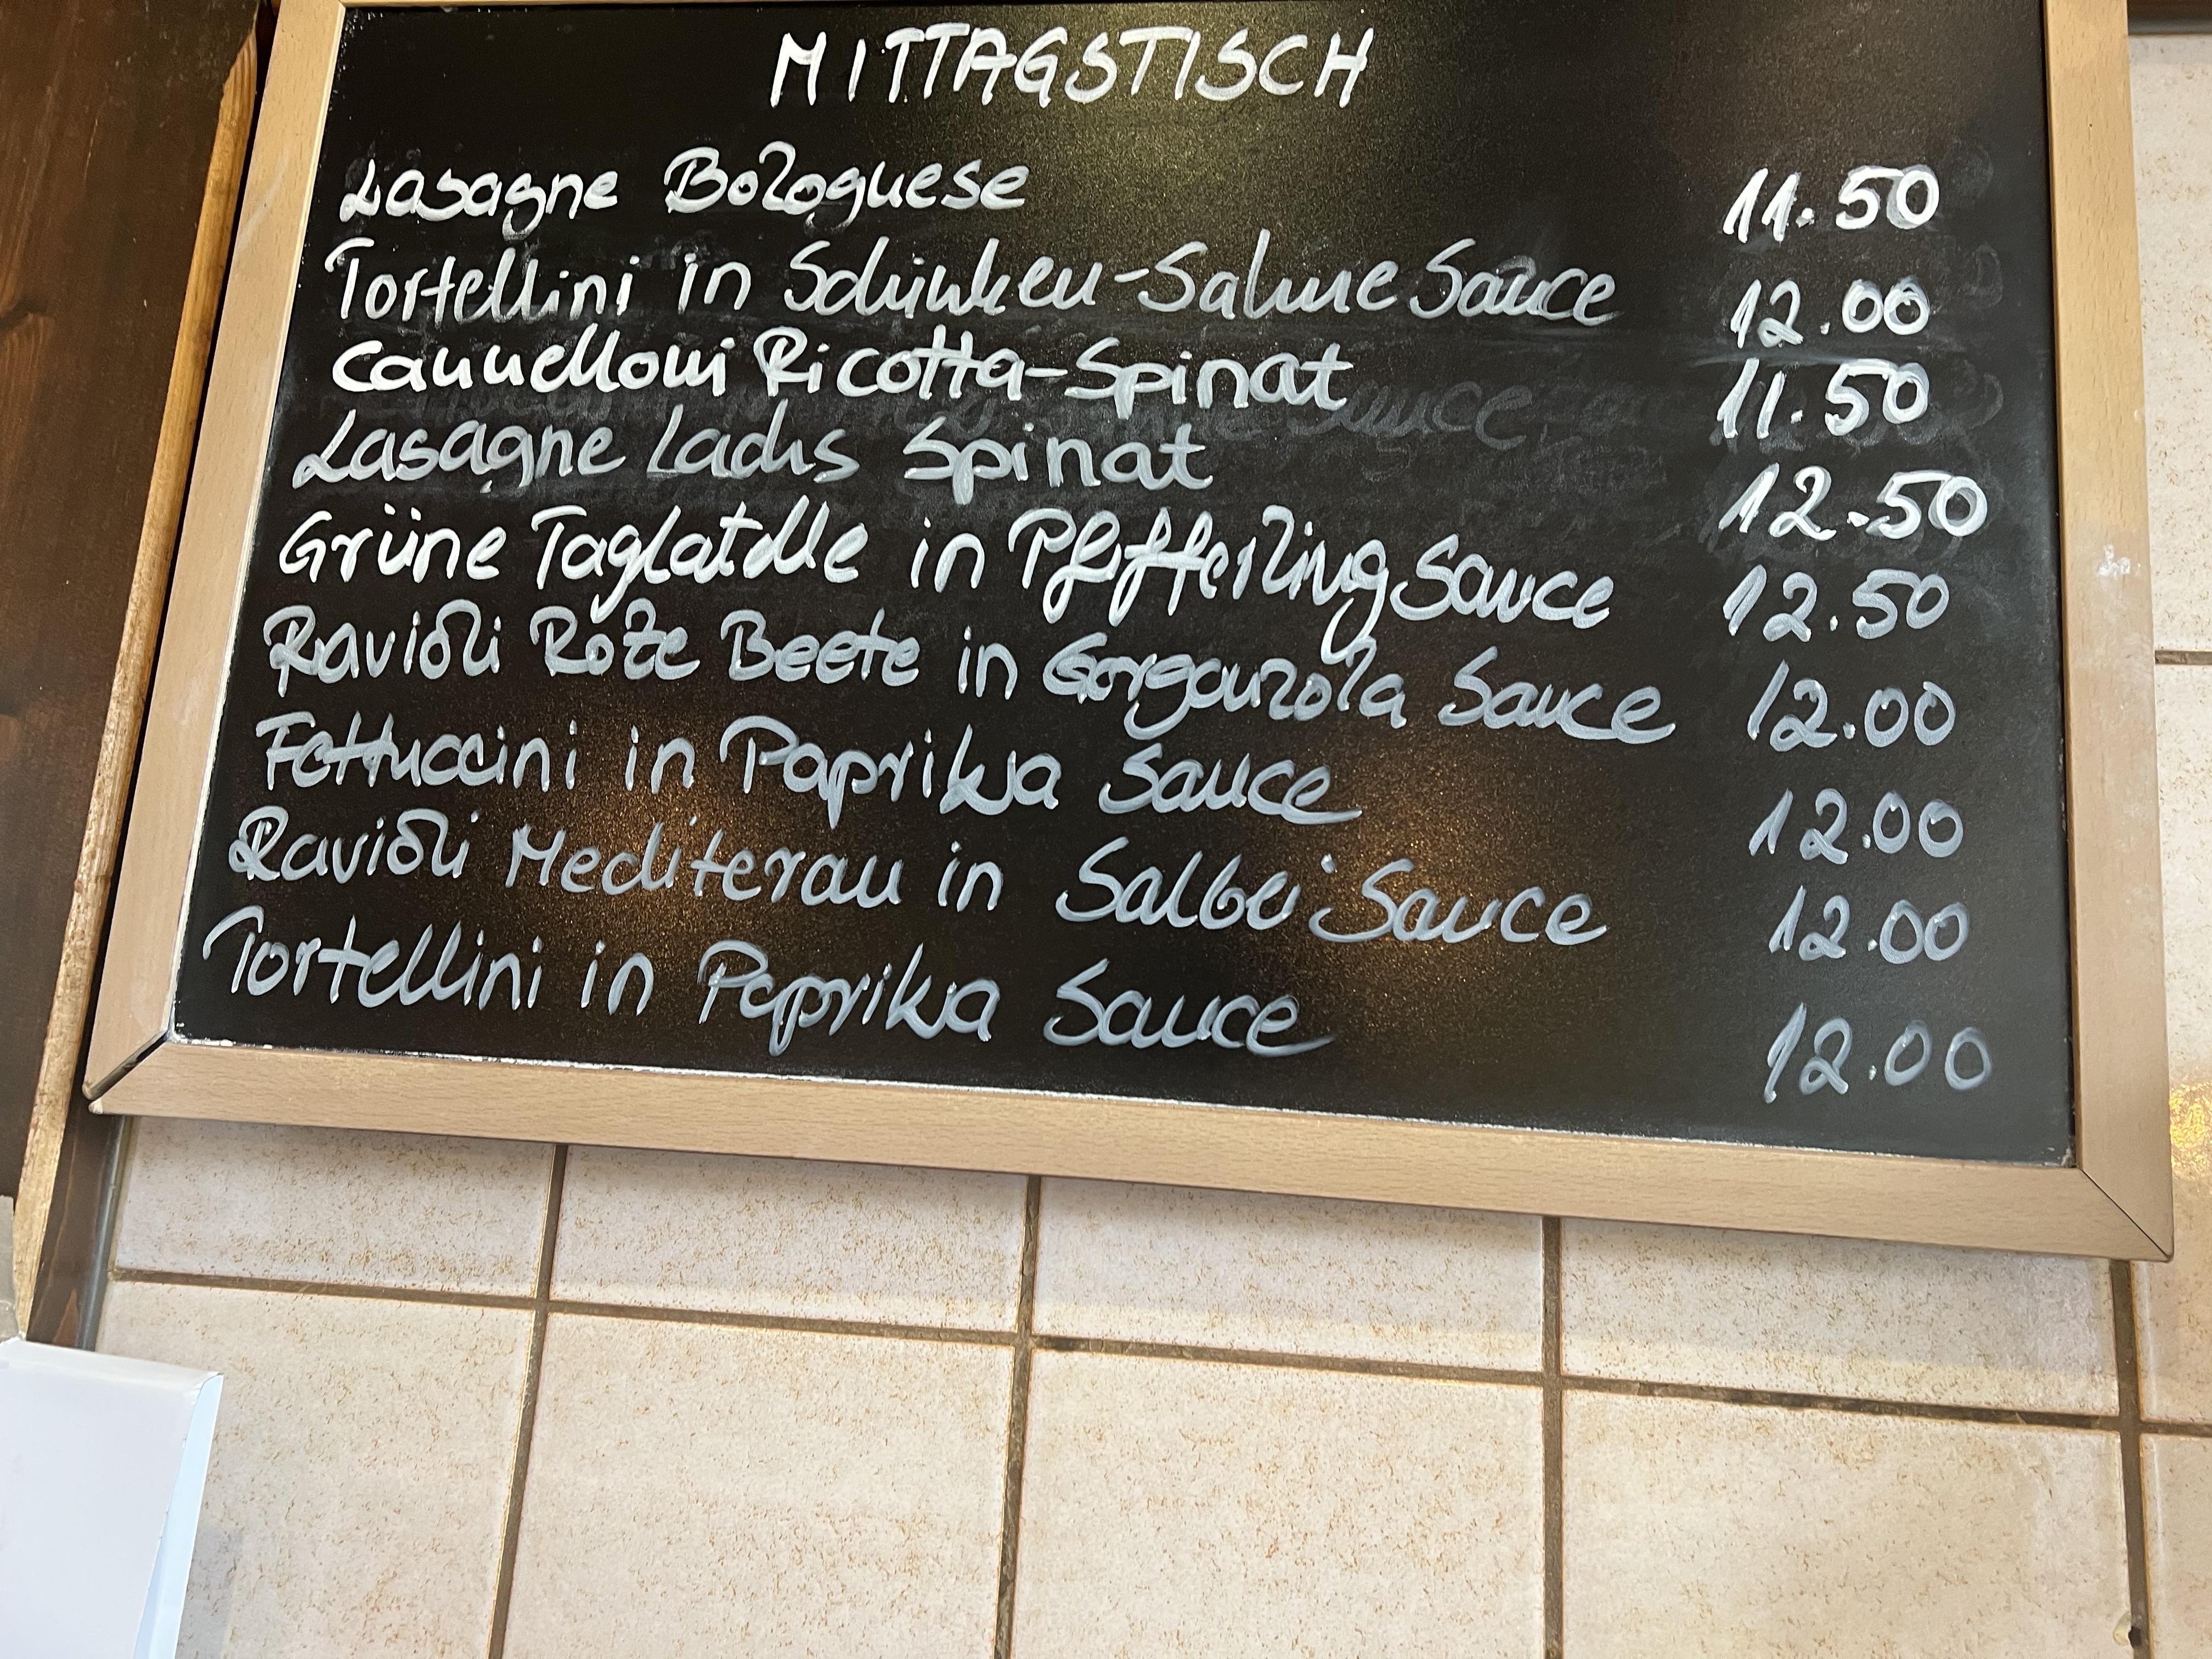 MITTAGSTISCH
Lasagne Bolognese 11.50
Tortellini in Schinken-Sahne Sauce 12.00
Cannelloni Ricotta-Spinat 11.50
Lasagne Lachs Spinat 12.50
Grüne Taglatelle in Pfifferling Sauce 12.50
Ravioli Rote Beete in Gorgonzola Sauce 12.00
Fettuccini in Paprika Sauce 12.00
Ravioli Mediteran in Salbei Sauce 12.00
Tortellini in Paprika Sauce 12.00